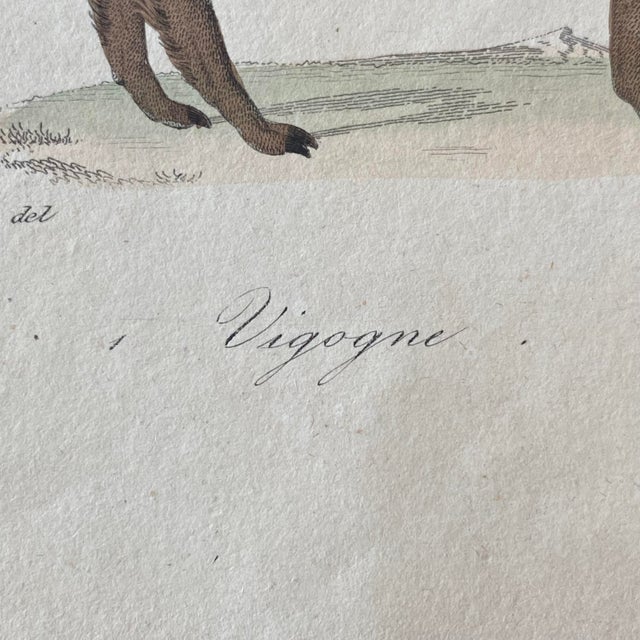 del
Vigogne